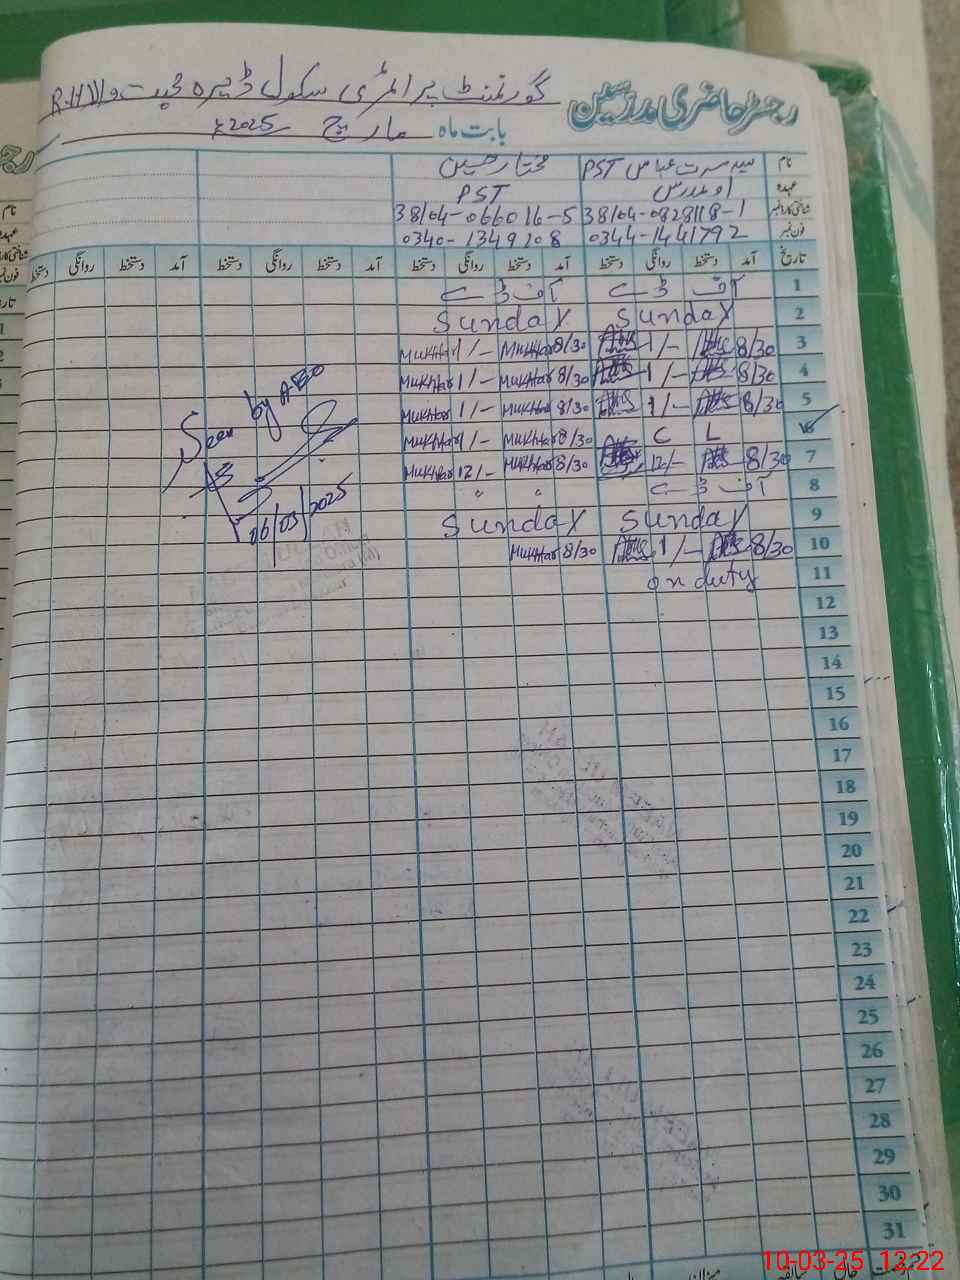 گورنمنٹ پرائمری سکول ڈیرہ محبت والا R.H
رجسٹر حاضری مدرسین
بابت ماہ مارچ 2025ء
نام سید عباس PST مختار حسین
عہدہ اول مدرس PST
شناختی کارڈ نمبر 38104-0828118-1 38104-066016-5
فون نمبر 0344-1441792 0340-1349108
تاریخ آمد دستخط روانگی دستخط آمد دستخط روانگی دستخط آمد دستخط روانگی دستخط آمد دستخط روانگی دستخط
1 آف ڈے آف ڈے
2 Sunday Sunday
3 8/30 1/- 8/30 Mukhtar 1/- Mukhtar
4 8/30 1/- 8/30 Mukhtar 1/- Mukhtar
5 8/30 1/- 8/30 Mukhtar 1/- Mukhtar
6 C L 8/30 Mukhtar 1/- Mukhtar
7 8/30 12/- 8/30 Mukhtar 12/- Mukhtar
8 آف ڈے " "
9 Sunday Sunday
10 8/30 1/- 8/30 Mukhtar
11 on duty
12
13
14
15
16
17
18
19
20
21
22
23
24
25
26
27
28
29
30
31
Seen by AEO
06/03/2025
10-03-25 12:22